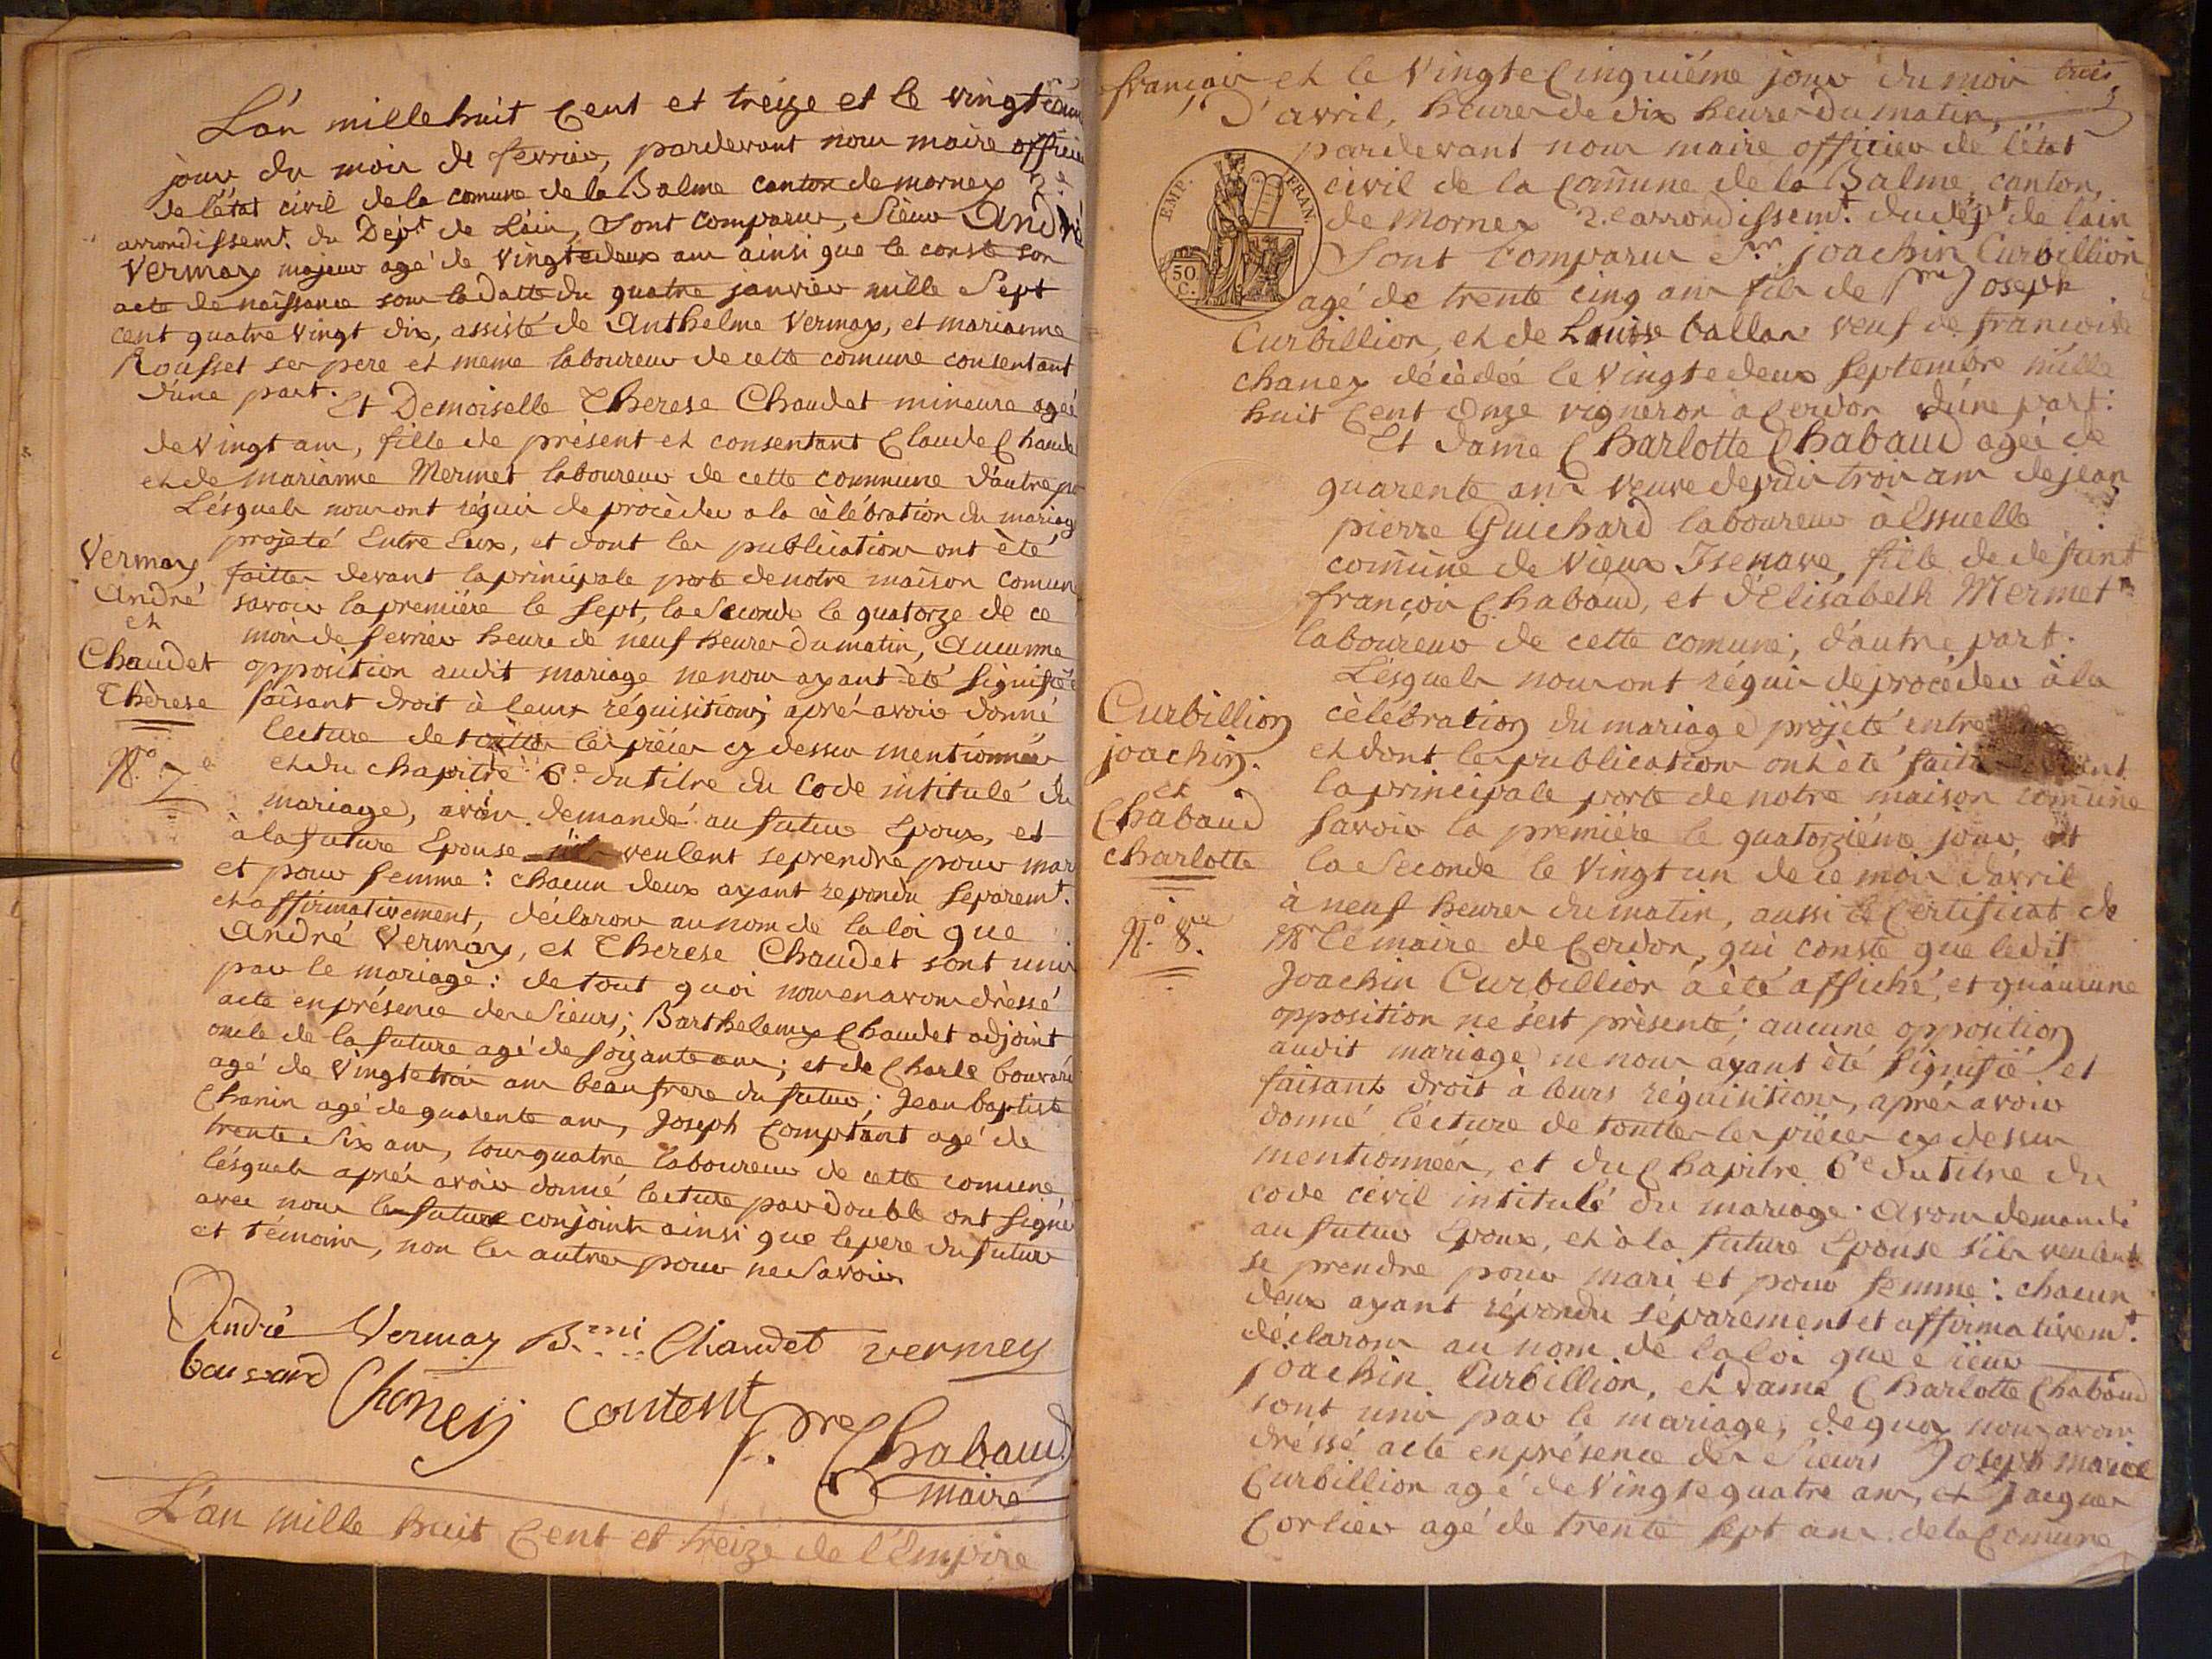 L'an mille huit Cent et treize et le vingt
jour du mois de fevrier, pardevant nous maire officier
de l'état civil de la comune de la Balme canton de mornex 2e
arrondissemt. du Dépt de L'ain, Sont comparus, Sieur André
Vermay majeur agé de Vingtedeux ans ainsi que le conste son
acte de naissance sous la datte du quatre janvier mille Sept
cent quatre vingt dix, assisté de Anthelme Vermay, et marianne
Rousset ses pere et meme laboureur de cette comune consentant
d'une part.
Et Demoiselle Therese Chaudet mineure agée
de Vingt ans, fille de présent et consentant Claude Chaudet
et de marianne Mermet laboureur de cette commune d'autre
Lésquels nous ont réquis de procèder a la cèlébration du mariage
projeté Entre Eux, et dont les publications ont èté
faittes devant la principale porte de notre maison comune
savoir la premiére le sept, la Seconde le quatorze de ce
mois de fevrier heure de neuf heures du matin, Aucunne
opposition audit mariage ne nous ayant été signifiée
faisant droit à leurs réquisitions; aprés avoir donné
lecture de touttes les piéces cy dessus mentionnées
et du chapitre 6e du titre du Code intitulé du
mariage, avons demandé au futur Epoux, et
à la future Epouse s'ils veulent se prendre pour mari
et pour femme: chacun deux ayant repondu separemt.
et affirmativement, déclarons au nom de la loi que
André Vermay, et Therese Chaudet sont unis
par le mariage: de tout quoi nous en avons dréssé
acte en présence des Sieurs; Barthelemy Chaudet adjoint
oncle de la future agé de soixante ans; et de Charle bouvard
agé de Vingtetrois ans beau frere du futur; Jean baptiste
Chanin agé de quarente ans, Joseph Comptant agé de
trente Six ans, tous quatre laboureur de cette comune,
lésquels aprés avoir donné lecture par double ont signé
avec nous les futurs conjoints ainsi que le pere du futur
et témoins, non les autres pour ne Savoir
André Vermay B.mi Chaudet vermey
bouvard Chaney content
Pre Chabaud
maire
L'an mille huit Cent et treize de l'Empire
Vermay
André
et
Chaudet
Thèrese
No. 7e
françois et le Vingte Cinquiéme jour du mois
D'avril, heure de dix heures du matin,
pardevant nous maire officier de l'état
civil de la Comune de la Balme, canton,
de Mornex 2.e arrondissemt. du dépt de l'ain
Sont Comparus Sr. joachin Curbillion
agé de trente cinq ans fils de Joseph
Curbillion, et de Louise ballan veuf de francoise
chaney décédée le Vingtedeux septembre mille
huit Cent Onze vigneron a Cerdon d'une part:
Et dame Charlotte Chabaud agée de
quarente ans veuve depuis trois ans de jean
pierre Guichard laboureur à Essuelle
comune de Vieux Isenave, fille de defunt
françois Chabaud, et d'Elisabeth Mermet
laboureur de cette comune, d'autre part.
Lésquels nous ont réquis de procéder à la
cèlébration du mariage projeté entre Eux
et dont les publications ont été faites devant
la principale porte de notre maison comune
savoir la premiére le quatorziéme jour, et
la Seconde le Vingt un de ce mois d'avril
à neuf heures du matin, aussi le Certificat de
Mr le maire de Cerdon, qui conste que ledit
Joachin Curbillion à été affiché, et qu'aucune
opposition ne s'est présenté; aucune opposition
audit mariage ne nous ayant été signifié et
faisant droit à leurs réquisitions, aprés avoir
donné lécture de touttes les piéces cy dessus
mentionnées, et du Chapitre 6e du titre du
code civil intitulé du mariage. Avons demandé
au futur Epoux, et à la future Epouse s'ils veulent
se prendre pour mari et pour femme: chacun
deux ayant répondu séparement et affirmativemt.
déclarons au nom de la loi que sieur
joachin Curbillion, et dame Charlotte Chabaud
sont unis par le mariage, de quoy nous avons
dréssé acte en présence des Sieurs Joseph marie
Curbillion agé de Vingtequatre ans, et Jacques
Corlier agé de trente sept ans de la Comune
EMP. FRAN.
50
C.
Curbillion
joachin.
et
Chabaud
charlotte
No. 8me